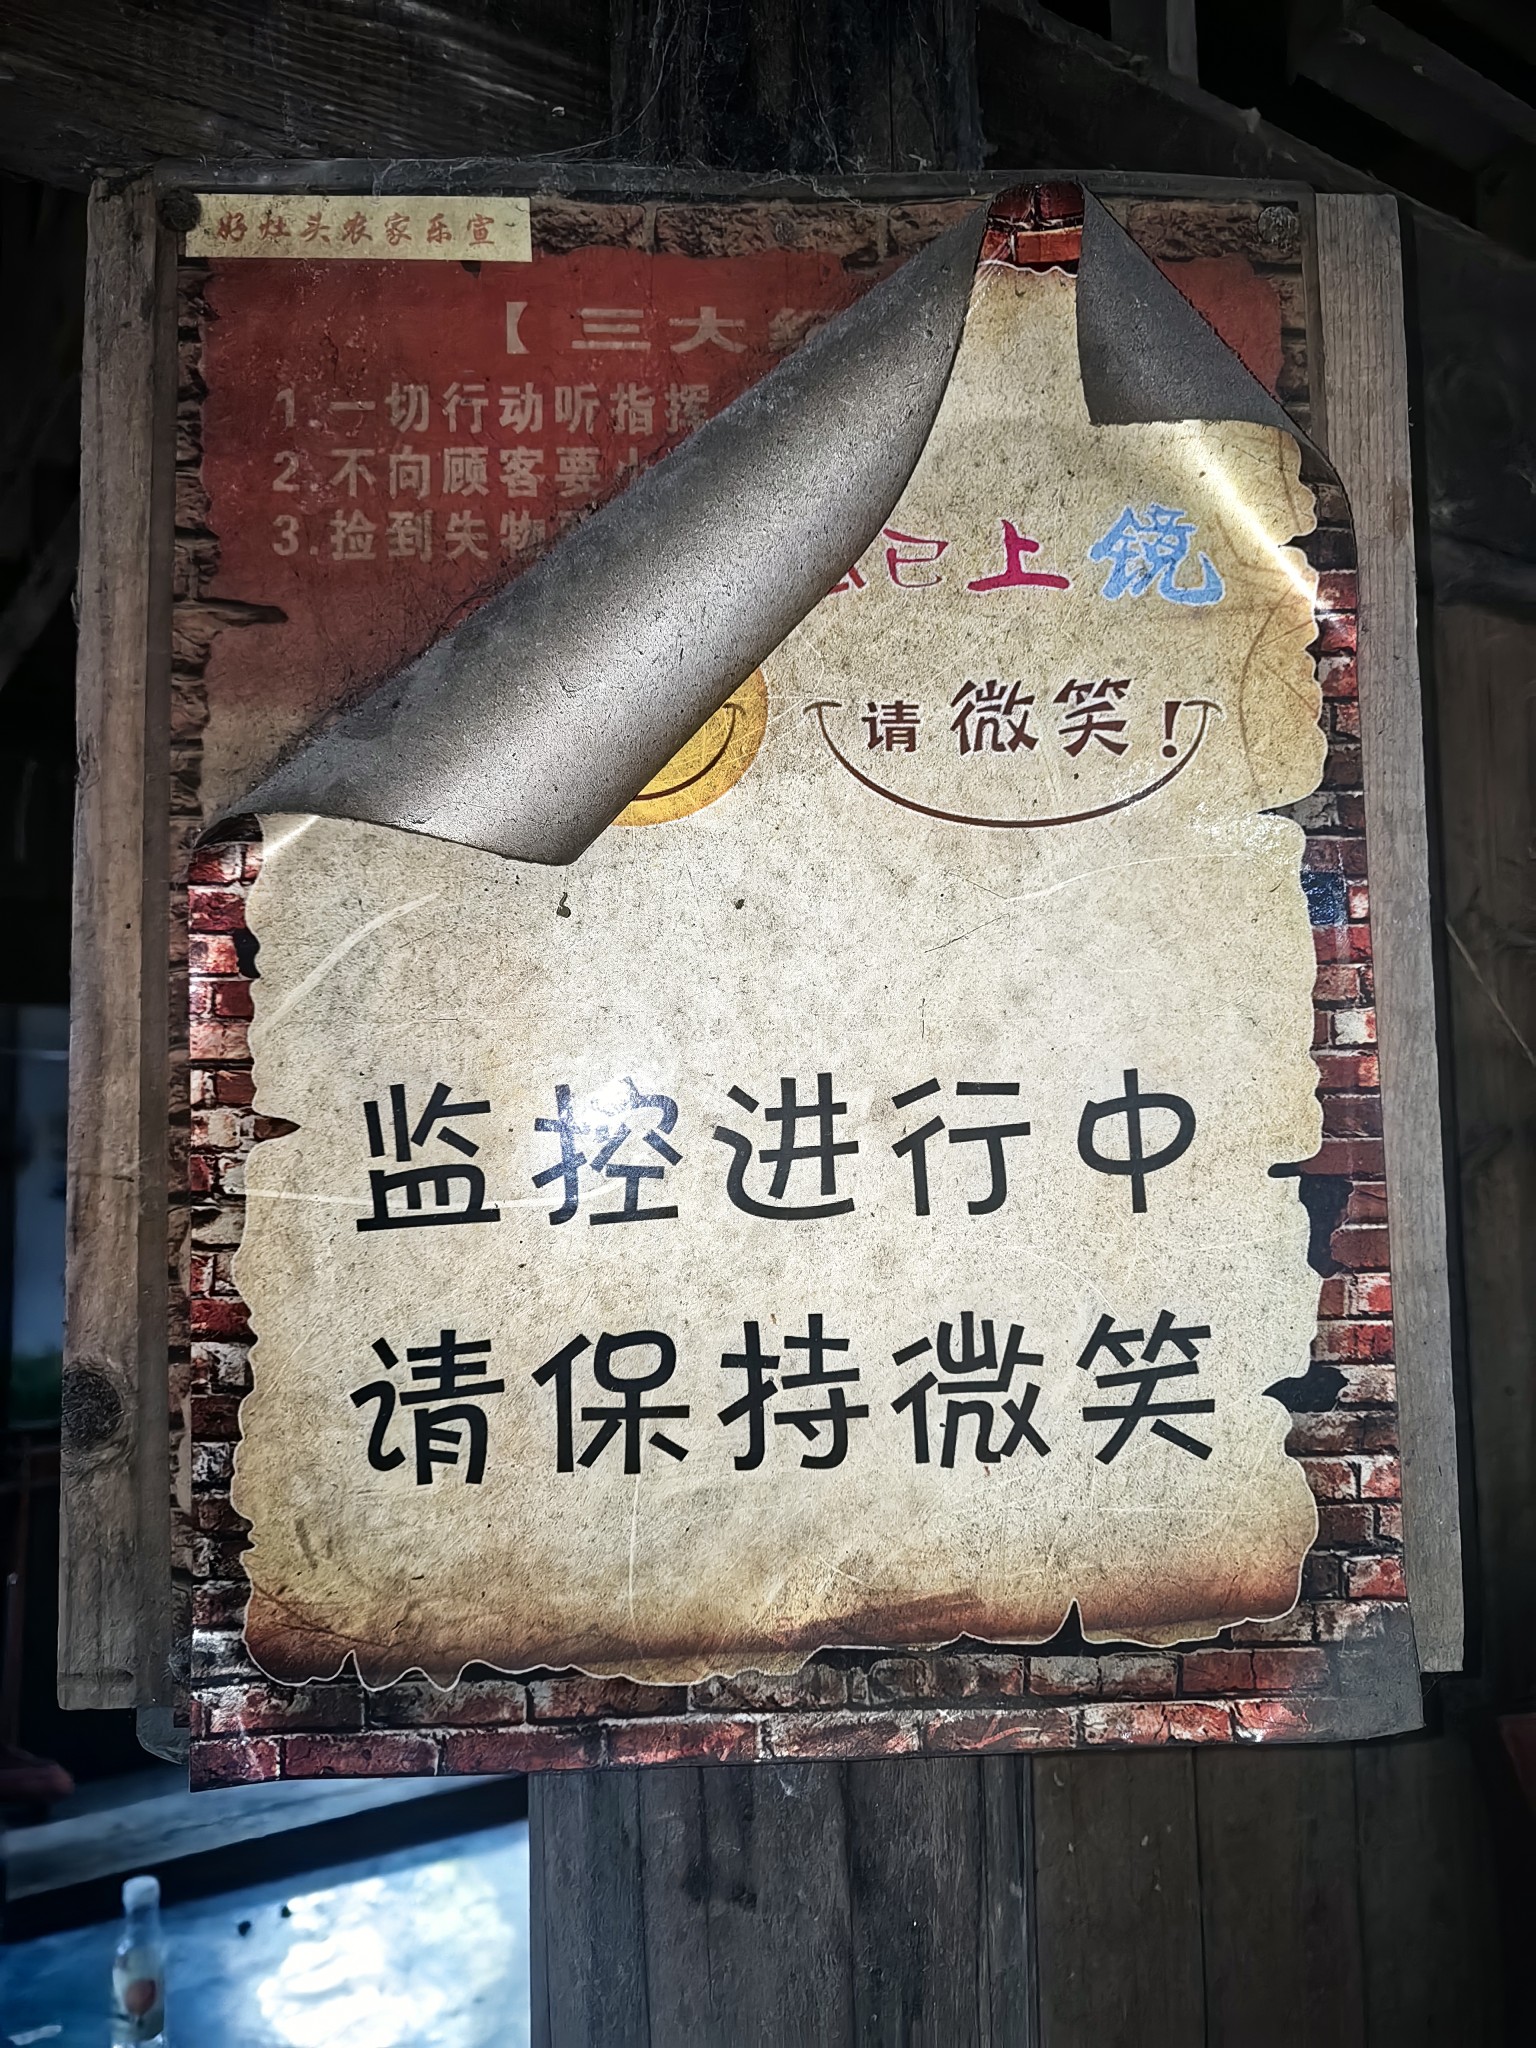 好灶头农家乐宣
【三大
1.一切行动听指挥
2.不向顾客要
3.捡到失物
已上镜
请微笑!
监控进行中
请保持微笑